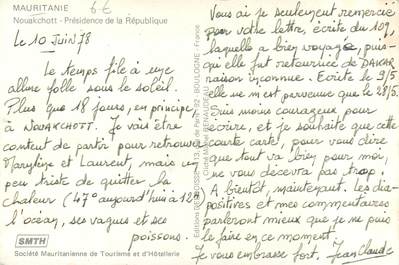 MAURITANIE
6 €
Nouakchott - Présidence de la République
Le 10 Juin 78
Le temps file à une
allure folle sous le soleil.
Plus que 18 jours, en principe,
à NOUAKCHOTT. Je vais être
content de partir pour retrouver
et Laurent, mais un
peu triste de quitter la
chaleur (47° aujourd'hui à 12h)
l'océan, ses vagues et ses
poissons.
SMTH
Société Mauritanienne de Tourisme et d'Hôtellerie
BOULOGNE - France
Vous ai je seulement remercié
pour votre lettre, écrite du 109,
laquelle a bien voyagé, puis-
qu'elle fut retournée de DAKAR
raison inconnue. Ecrite le 9/5
elle ne m'est parvenue que le 28/5.
Suis moins courageux pour
écrire, et je souhaite que cette
courte carte, pour vous dire
que tout va bien pour moi,
ne vous décevra pas trop.
A bientôt, maintenant. Les dia-
positives et mes commentaires
parleront mieux que je ne puis
le faire en ce moment.
Je vous embrasse fort. Jean Claude